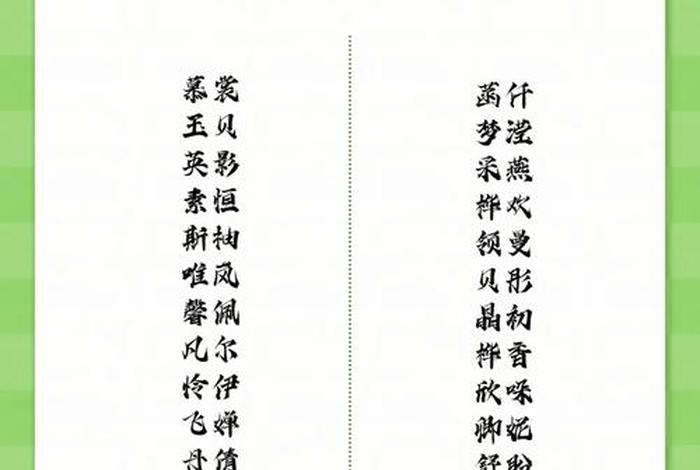 慕裳
玉贝
英影
素恒
斯柚
唯凤
馨佩
凡尔
怜伊
飞婵
丹倩
菡仟
梦滢
采燕
桦欢
领曼
贝彤
晶初
桦香
欣咪
卿妮
舒盼